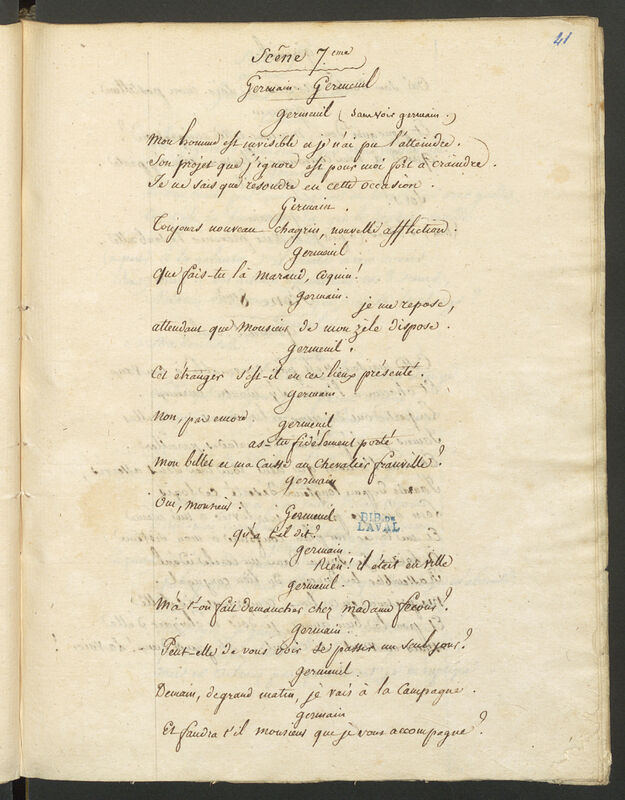 41
Scêne 7.eme
Germain. Germeuil
germeuil (sans voir germain.)
Mon homme est invisible et je n'ai pu l'atteindre.
Son projet que j'ignore est pour moi fort à craindre.
Je ne sais que resoudre en cette occasion.
Germain.
Toujours nouveau chagrin, nouvelle affliction.
germeuil
que fais-tu là maraud, coquin!
germain.
je me repose,
attendant que Monsieur de mon zèle dispose.
germeuil.
Cet étranger s'est-il en ces lieux présenté.
germain
Non, pas encore
germeuil
as-tu fidèlement porté
Mon billet et ma caisse au chevalier franville?
germain
Oui, monsieur.
Germeuil
qu'a t'il dit?
germain.
Rien! il était en ville
germeuil.
M'a t-on fait demander chez madame
germain.
Peut-elle de vous voir se passer un seul jour?
germeuil.
Demain, de grand matin, je vais à la campagne.
germain
Et faudra t'il monsieur que je vous accompagne?
BIB. DE
LAVAL